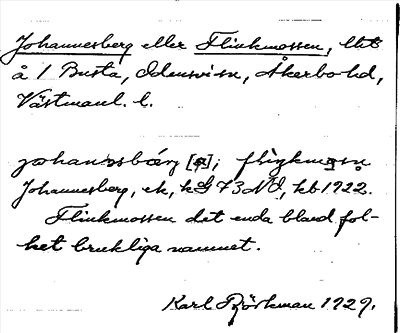 Johannesberg eller Flinkmossen, lht
å 1 Busta, Odensvi sn, Åkerbo hd,
Västmanl. l.
johanəsbärj [ ]; fliŋkmosn
Johannesberg, ek, kG 73 NÖ, kb 1922.
Flinkmossen det enda bland fol-
ket brukliga namnet.
Karl Björkman 1929.